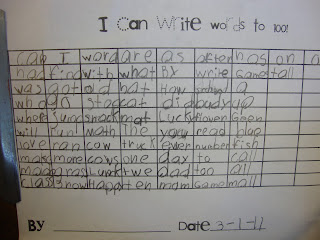 I Can Write words to 100!
can I word are as often has on a
had find with what By write game tall
was got old hat How a
who go stop cat did daddy up
where fun snack mat Lucky flower Green
will run math the you read blue
love ran cow truck ever number fish
make more cows one day to call
made Lunk two Dad too all
class now Happy ten mom Game mall
BY Date 3-1-11